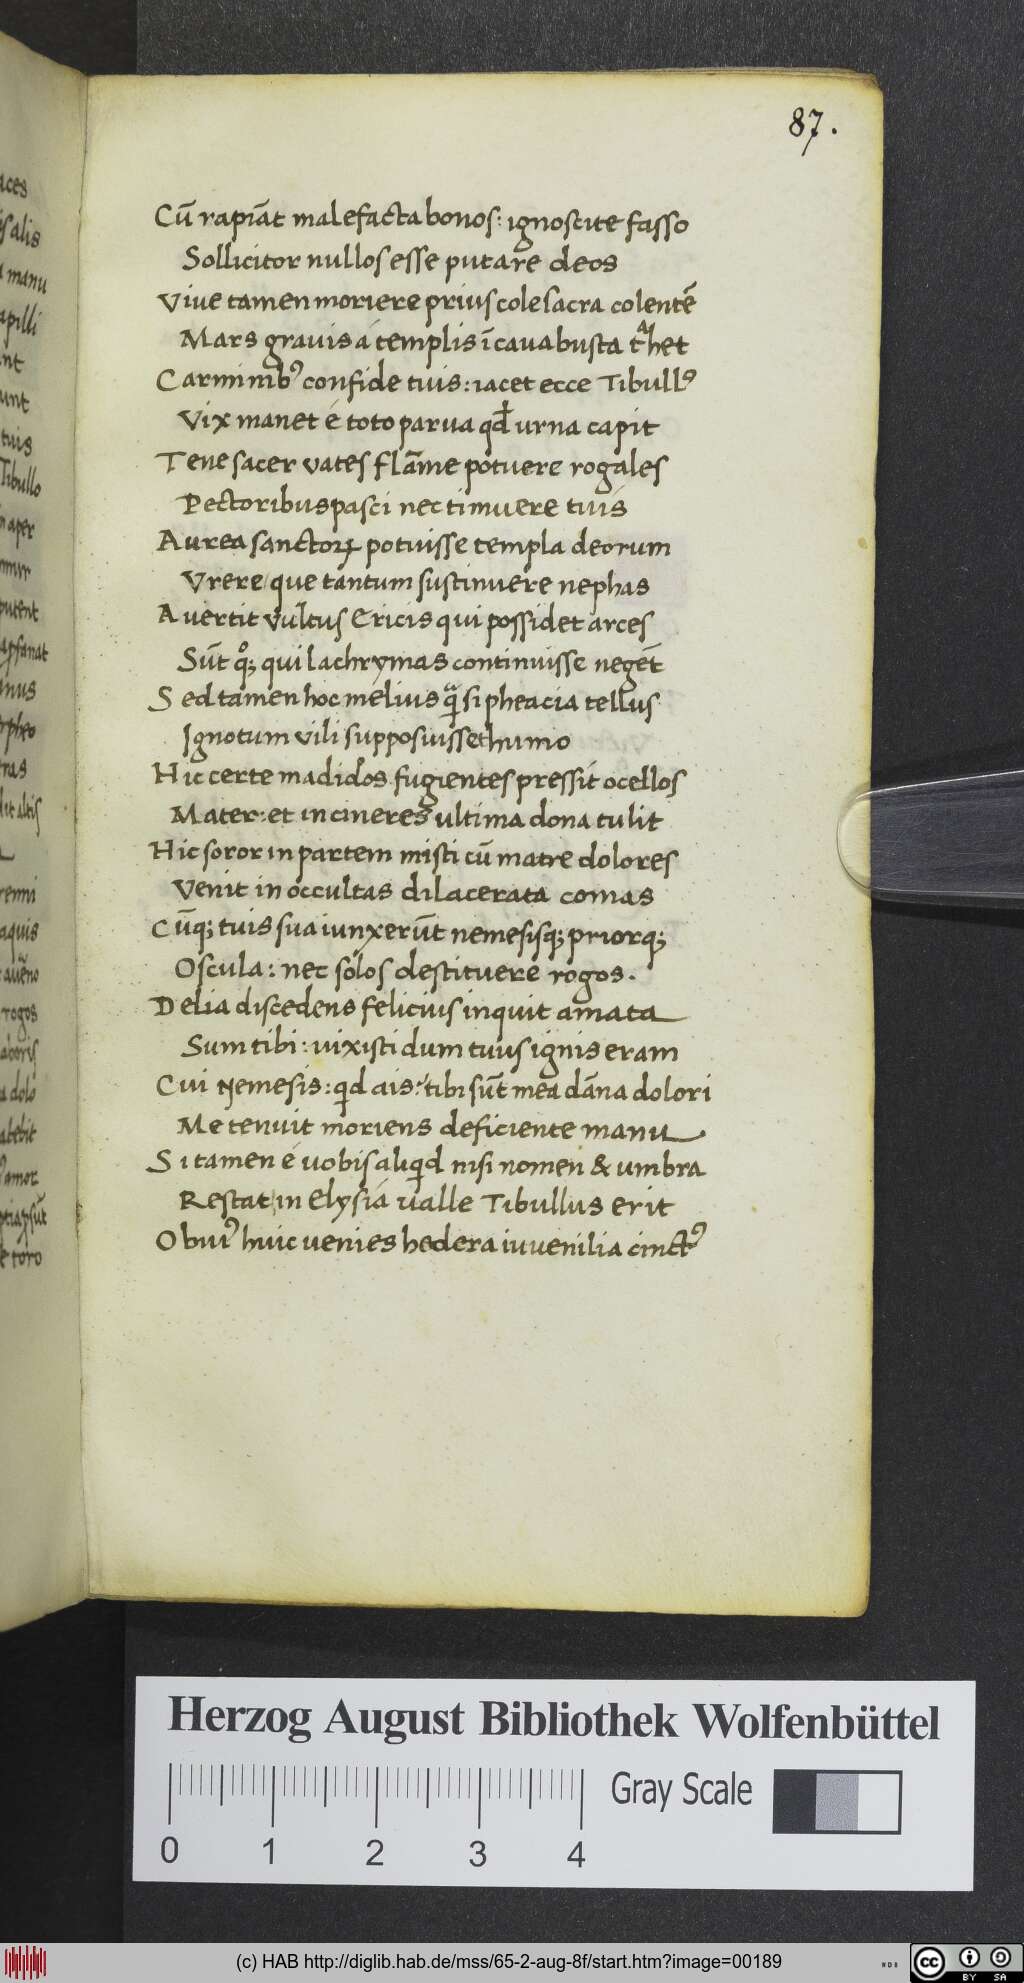 87.
Cū rapiāt malefacta bonos: ignoscite fasso
Sollicitor nullos esse putare deos
Viue tamen moriere prius cole sacra colentē
Mars grauis á templis ī caua busta tᵃhet
Carminibꝰ confide tuis: iacet ecce Tibullꝰ
Vix manet é toto parua qđ urna capit
Tene sacer vates flāme potuere rogales
Pectoribus pasci nec timuere tuis
Aurea sanctoꝝ potuisse templa deorum
Vrere que tantum sustinuere nephas
Auertit vultus Ericis qui possidet arces
Sūt qͦꝫ qui lachrymas continuisse negēt
Sed tamen hoc melius ꝙᷓ si pheacia tellus
Ignotum vili supposuisset humo
Hic certe madidos fugientes pressit ocellos
Mater: et in cineres ultima dona tulit
Hic soror in partem misti cū matre dolores
Venit in occultas dilacerata comas
Cūqꝫ tuis sua iunxerūt nemesisqꝫ priorqꝫ
Oscula: nec solos destituere rogos.
Delia discedens felicius inquit amata
Sum tibi: uixisti dum tuus ignis eram
Cui Nemesis: qͥd ais: tibi sūt mea dāna dolori
Me tenuit moriens deficiente manu
Si tamen é uobis aliqͥd nisi nomen & umbra
Restat in Elysia ualle Tibullus erit
Obuiꝰ huic uenies hedera iuuenilia cinctꝰ
aces
alis
manu
apilli
nt
unt
tuis
Tibullo
aper
putent
nus
rpheo
altis
aquis
rogos
dolo
amor
toro
Herzog August Bibliothek Wolfenbüttel
0 1 2 3 4
Gray Scale
(c) HAB http://diglib.hab.de/mss/65-2-aug-8f/start.htm?image=00189
cc BY SA